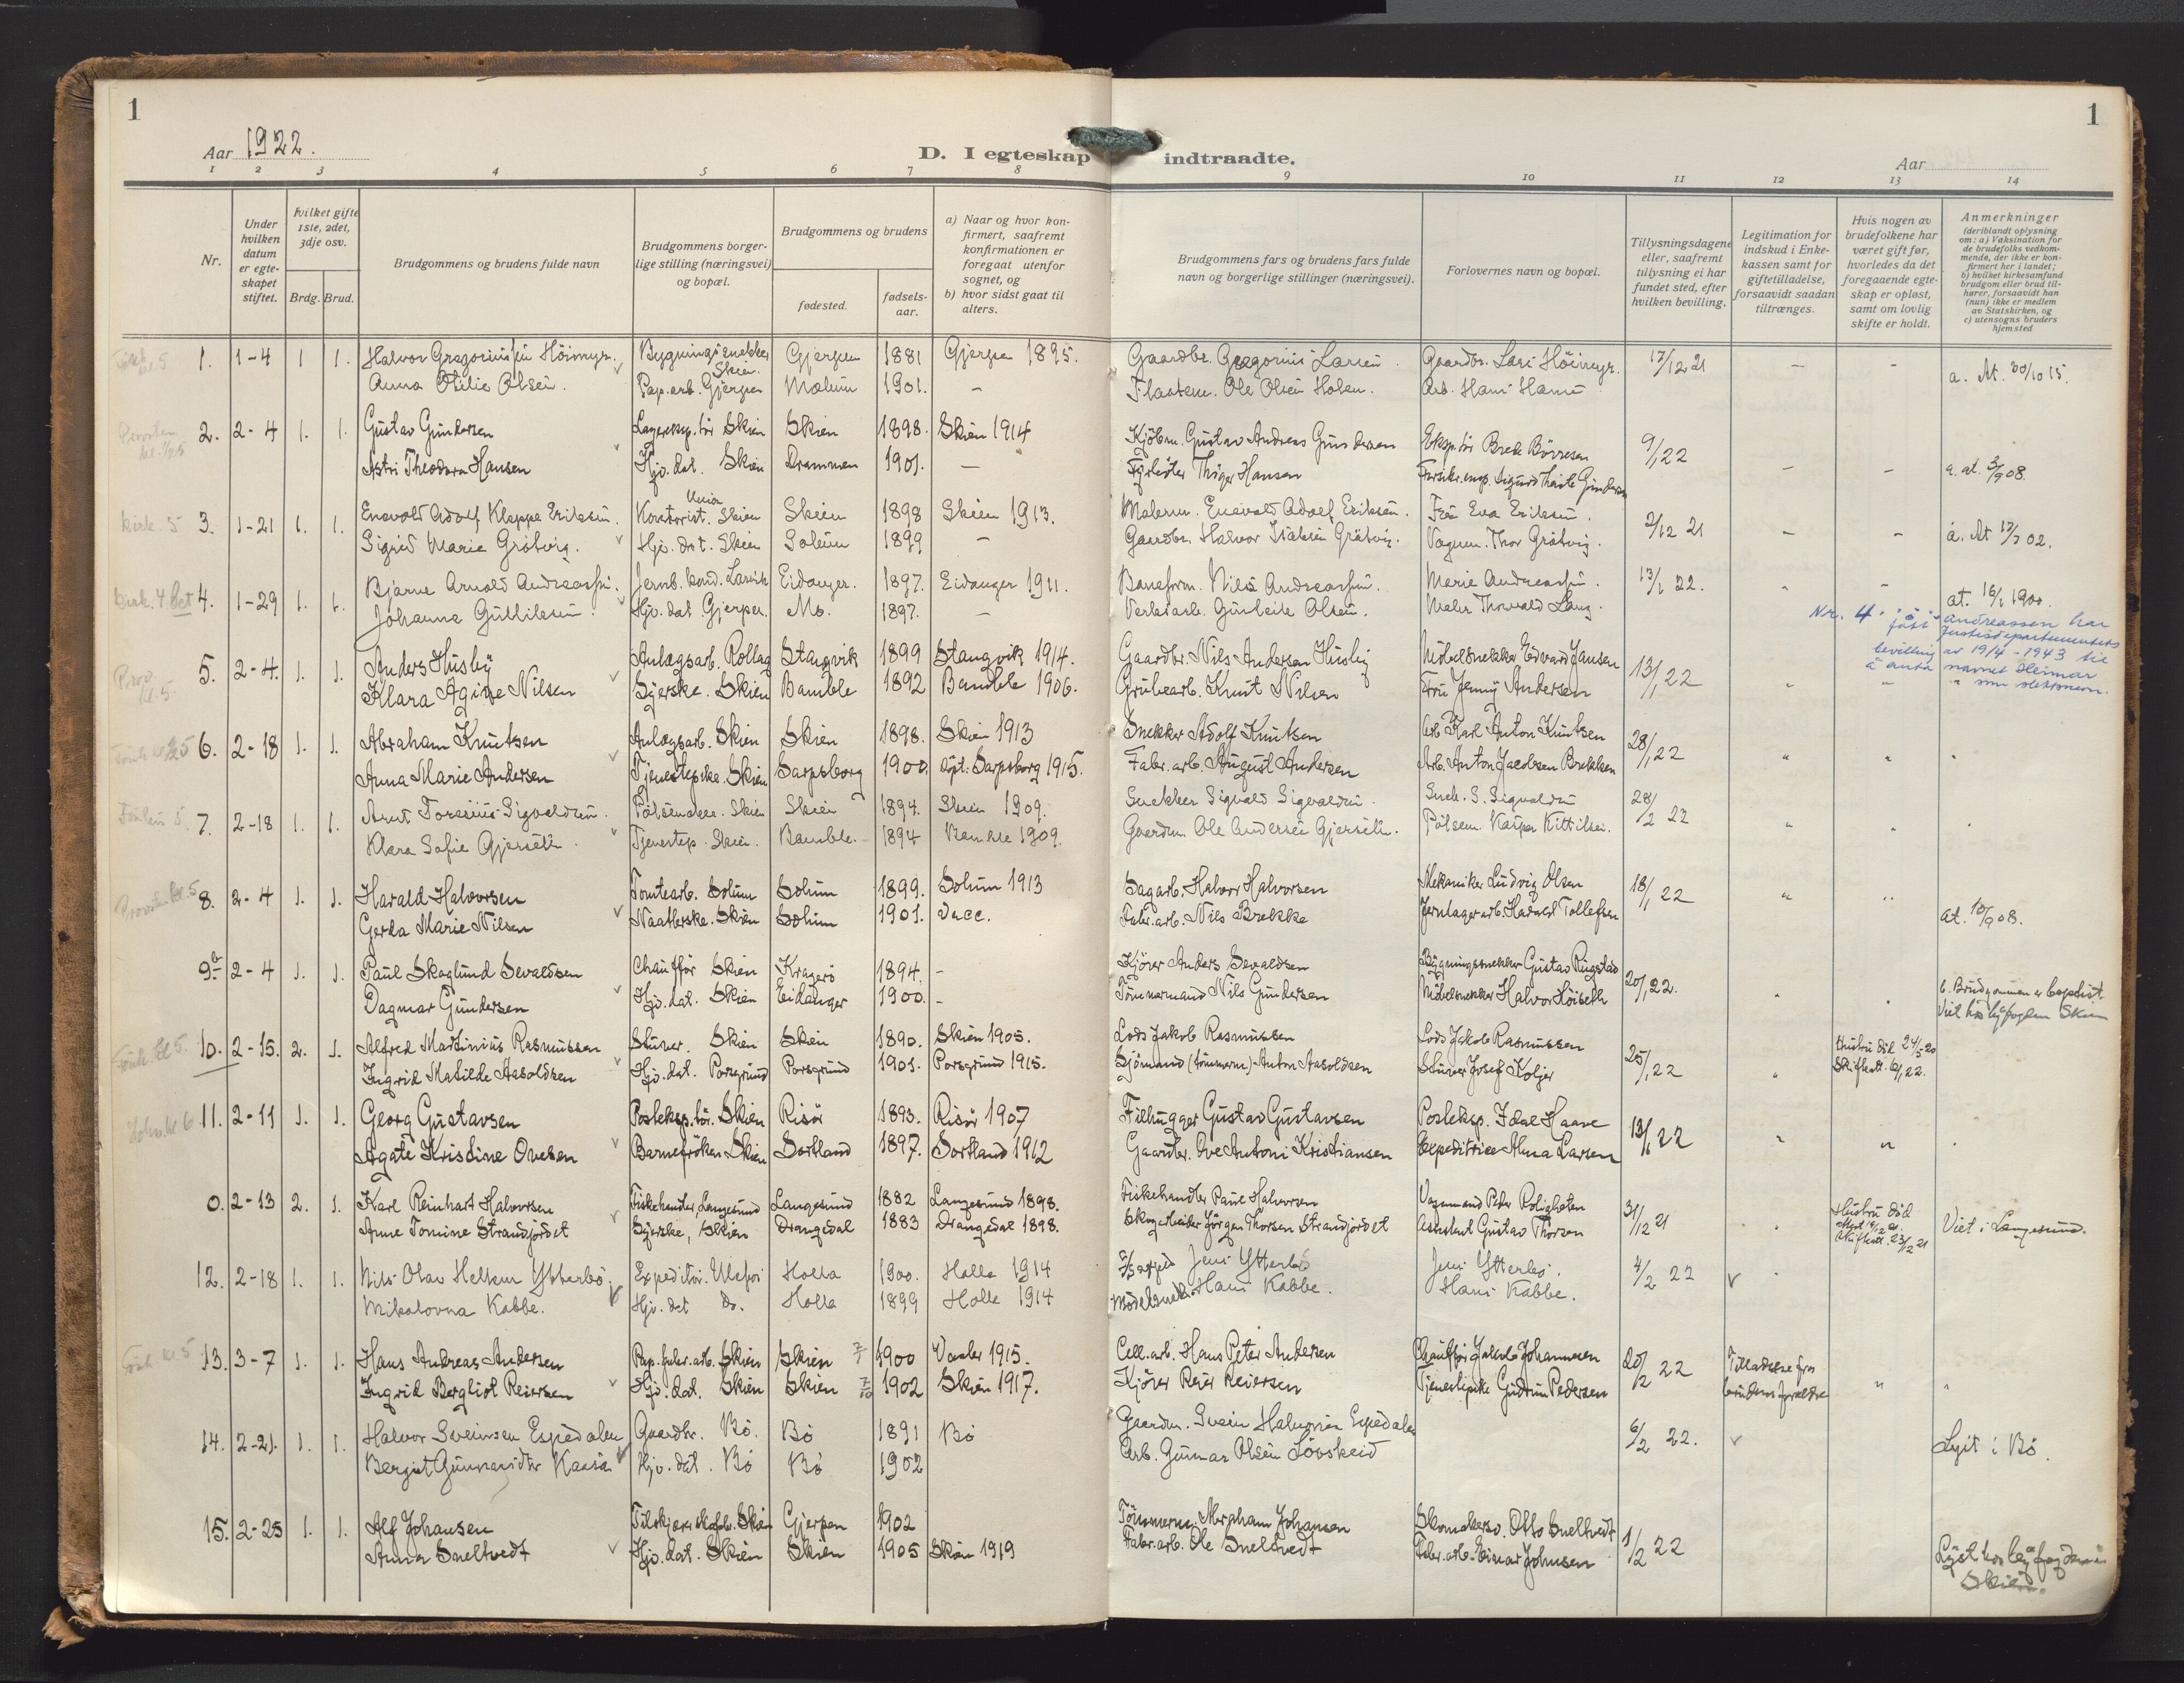 1
Aar 1922.
D. I egteskap indtraadte.
Aar
1
1 2 3 4 5 6 7 8 9 10 11 12 13 14
Nr.
Under hvilken datum er egteskapet stiftet.
hvilket gifte 1ste, 2det, 3dje osv.
Brdg. Brud.
Brudgommens og brudens fulde navn
Brudgommens borgerlige stilling (næringsvei) og bopæl.
Brudgommens og brudens
fødested.
fødselsaar.
a) Naar og hvor konfirmert, saafremt konfirmationen er foregaat utenfor sognet, og
b) hvor sidst gaat til alters.
Brudgommens fars og brudens fars fulde navn og borgerlige stillinger (næringsvei).
Forlovernes navn og bopæl.
Tillysningsdagene eller, saafremt tillysning ei har fundet sted, efter hvilken bevilling.
Legitimation for indskud i Enkekassen samt for giftetilladelse, forsaavidt saadan tiltrænges.
Hvis nogen av brudefolkene har været gift før, hvorledes da det foregaaende egteskap er opløst, samt om lovlig skifte er holdt.
Anmerkninger (deriblandt oplysning om: a) Vaksination for de brudefolks vedkommende, der ikke er konfirmert her i landet; b) hvilket kirkesamfund brudgom eller brud tilhører, forsaavidt han (hun) ikke er medlem av Statskirken, og c) utensogns bruders hjemsted
1. 1-4 1 1. Halvor Gregorius Høimyr. Bygningssnekker Skien. Gjerpen 1881 Gjerpen 1895. Gaardbr. Gregorius Larsen. Gaardbr. Lars Höimyr. 17/12 21 - - a. At. 30/10 15.
Anna Otilie Olsen. Pap.arb. Gjerpen Mælum 1901. - Ole Olsen Holen. Arb. Hans
2. 2-4 1. 1. Gustav Gundersen Lagereksp.tør Skien Skien 1898. Skien 1914 Kjöbm. Gustav Andreas Gundersen Eksp.tör Brede Börresen 9/1 22 - - a. at. 3/9 08.
Astri Theodora Hansen Hjv. dat. Skien Drammen 1901. - Fyrböter Thöger Hansen
3. 1-21 1. 1. Enevold Adolf Kleppe Eriksen. Kontorist. Union Skien Skien 1898 Skien 1913. Malerm. Enevold Adolf Eriksen. Fru Eva Eriksen. 2/12 21 - - a. At 17/7 02.
Sigrid Marie Gråtvig. Hjv. dat. Skien Solum 1899 - Gaardbr. Halvor Isaksen Gråtvig. Vognm. Thor Gråtvig.
4. 1-29 1. 1. Bjarne Arnold Andreassen. Jernb. kond. Larvik Eidanger. 1897. Eidanger 1911. Baneform. Nils Andreassen. Marie Andreassen. 13/1 22.
Johanna Gulliksen. Hjv. dat Gjerpen. Mo. 1897. - Verksarb. Gunleik Olsen. Maler Thorvald Lang. at. 16/1 1900.
Nr. 4. Andreassen har fått Justisdepartementets bevilling av 19/4-1943 til å anta navnet Heimar som slektsnavn.
5. 2-4. 1. 1. Anders Husby Anlægsarb. Rollag Stangvik 1899 Stangvik 1914. Gaardbr. Nils Andersen Husby Möbelsnekker Edvard Jansen 13/1 22
Klara Agine Nilsen Syerske. Skien Bamble 1892 Bamble 1906. Grubearb. Knut Nilsen Fru Jenny Andersen
6. 2-18 1. 1. Abraham Knutsen Anlægsarb. Skien Skien 1898. Skien 1913 Snekker Adolf Knutsen Arb. Karl Anton Knutsen 28/1 22
Anna Marie Andersen Tjenestepike. Skien Sarpsborg 1900. Sarpsborg 1915. Fabr. arb. August Andersen Arb. Anton Jacobsen Brekken
7. 2-18 1. 1. Arnt Torsenius Sigvaldsen. Pølsemaker. Skien Skien 1894. Skien 1909. Snekker Sigvald Sigvaldsen. Snek. S. Sigvaldsen 28/2 22
Klara Sofie Gjerseth. Tjenestep. Skien. Bamble. 1894 Bamble 1909. Gaardm. Ole Andersen Gjerseth. Pölsem. Kasper Kittilsen.
8. 2-4 1. 1. Harald Halvorsen Tomtearb. Solum Solum 1899. Solum 1913 Sagarb. Halvor Halvorsen Mekaniker Ludvig Olsen 18/1 22
Gerda Marie Nilsen Naatlerske. Skien Solum 1901. Vacc. Fabr.arb. Nils Brekke Jernlagerarb. Harald Tollefsen at. 10/9 08.
9b 2-4 1. 1. Paul Skoglund Sevaldsen Chauffør Skien Kragerö 1894. - Kjörer Anders Sevaldsen Bygningssnekker Gustav Ringstad 20/1 22.
Dagmar Gundersen Hjv. dat. Skien Eidanger 1900. - Tömmermand Nils Gundersen Möbelsnekker Halvor Höiseth b. Brudgommen er baptist. Viet hos byfogden Skien
10. 2-15. 2. 1. Alfred Martinius Rasmussen Stuver. Skien Skien 1890. Skien 1905. Lods Jakob Rasmussen Lods Jakob Rasmussen 25/1 22 Hustru död 24/5 20
Ingrid Matilde Aasoldsen Hjv. dat. Porsgrund Porsgrund 1901. Porsgrund 1915. Sjömand (tömmerm.) Anton Aasoldsen Stuver Josef Koljer Skifteatt. 6/1 22.
11. 2-11 1. 1. Georg Gustavsen Posteksp.tör. Skien Risör 1893. Risör 1907 Filhugger Gustav Gustavsen Posteksp. Idar Haave 13/1 22
Agate Kristine Ovesen Barnefröken Skien Sortland 1897. Sortland 1912 Gaardbr. Ove Antoni Kristiansen Expeditrice Alma Larsen
0. 2-13 2. 1. Karl Reinhart Halvorsen Fiskehandler, Langesund Langesund 1882 Langesund 1898. Fiskehandler Paul Halvorsen Vognmand Peter Roligheten 31/12 21 Hustru död
Anne Tomine Strandjordet Syerske, Skien Drangedal 1883 Drangedal 1898. Skogarbeider Jörgen Thorsen Strandjordet Assistent Gustav Thorsen Skifteatt. 23/12 21 Viet i Langesund.
12. 2-18 1. 1. Nils Olav Hellem Ytterbö. Expeditör. Ulefos Holla 1900. Holla 1914 Jens Ytterbö Jens Ytterbö. 4/2 22
Mikalovna Kabbe. Hjv. dat do. Holla 1899 Holla 1914 Modelsnek. Hans Kabbe. Hans Kabbe.
13. 3-7 1. 1. Hans Andreas Andersen Pap.fabr.arb. Skien Skien 7/7 1900 Vaaler 1915. Cell.arb. Hans Peter Andersen Chauffør Jakob Johannesen 20/2 22 Tilladelse fra
Ingrid Bergliot Reiersen Hjv. dat. Skien Skien 7/10 1902 Skien 1917. Kjörer Reier Reiersen Tjenestepike Gudrun Pedersen brudens forældre
14. 2-21. 1. 1. Halvor Sveinsen Espedalen Gaardbr. Bö. Bö 1891 Bö Gaardm. Svein Halvorsen Espedalen 6/2 22.
Bergit Gunnarsdtr Kaasa Hjv. dat. Bö Bö 1902 Arb. Gunnar Olsen Lövskeid Lyst i Bö.
15. 2-25 1. 1. Alf Johansen Skien Gjerpen 1902 Tömmerm. Abraham Johansen Skomakersv. Otto Sneltvedt 1/2 22
Anna Sneltvedt Hjv. dat. Skien Skien 1905 Skien 1919 Fabr.arb. Ole Sneltvedt Fabr.arb. Einar Johnsen Lyst hos byfogden i Skien.